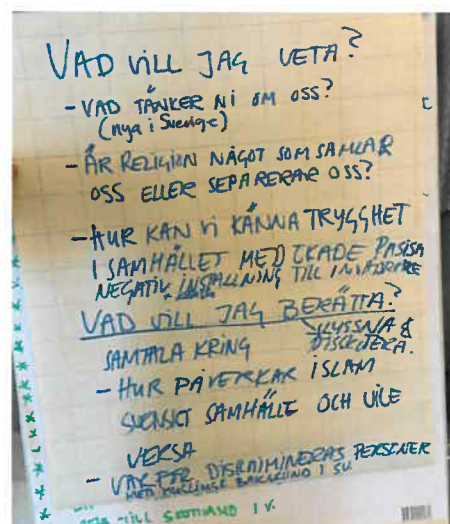 VAD VILL JAG VETA?
- VAD TÄNKER NI OM OSS?
(nya i Sverige)
- ÄR RELIGION NÅGOT SOM SAMLAR
OSS ELLER SEPARERAR OSS?
- HUR KAN VI KÄNNA TRYGGHET
I SAMHÄLLET MED ÖKADE
NEGATIV INSTÄLLNING TILL INVANDRARE
VAD VILL JAG BERÄTTA?
LYSSNA &
SAMTALA KRING DISKUTERA.
- HUR PÅVERKAR ISLAM
SVENSKT SAMHÄLLE OCH VICE
VERSA
- VARFÖR DISKRIMINERAS PERSONER
MED MUSLIMSK BAKGRUND I SV.
TILL I V.